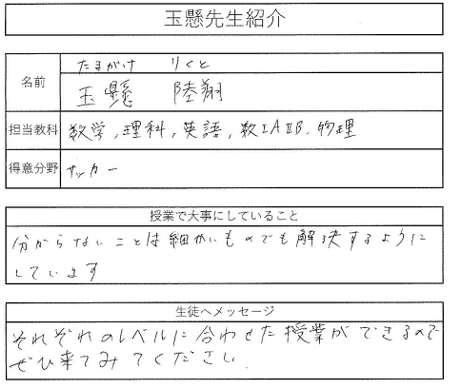 玉懸先生紹介
名前
たまがけ りくと
玉懸 陸翔
担当教科
数学, 理科, 英語, 数ⅠAⅡB. 物理
得意分野
サッカー
授業で大事にしていること
分からないことは細かいものでも解決するように
しています
生徒へメッセージ
それぞれのレベルに合わせた授業ができるので
ぜひ来てみてください.